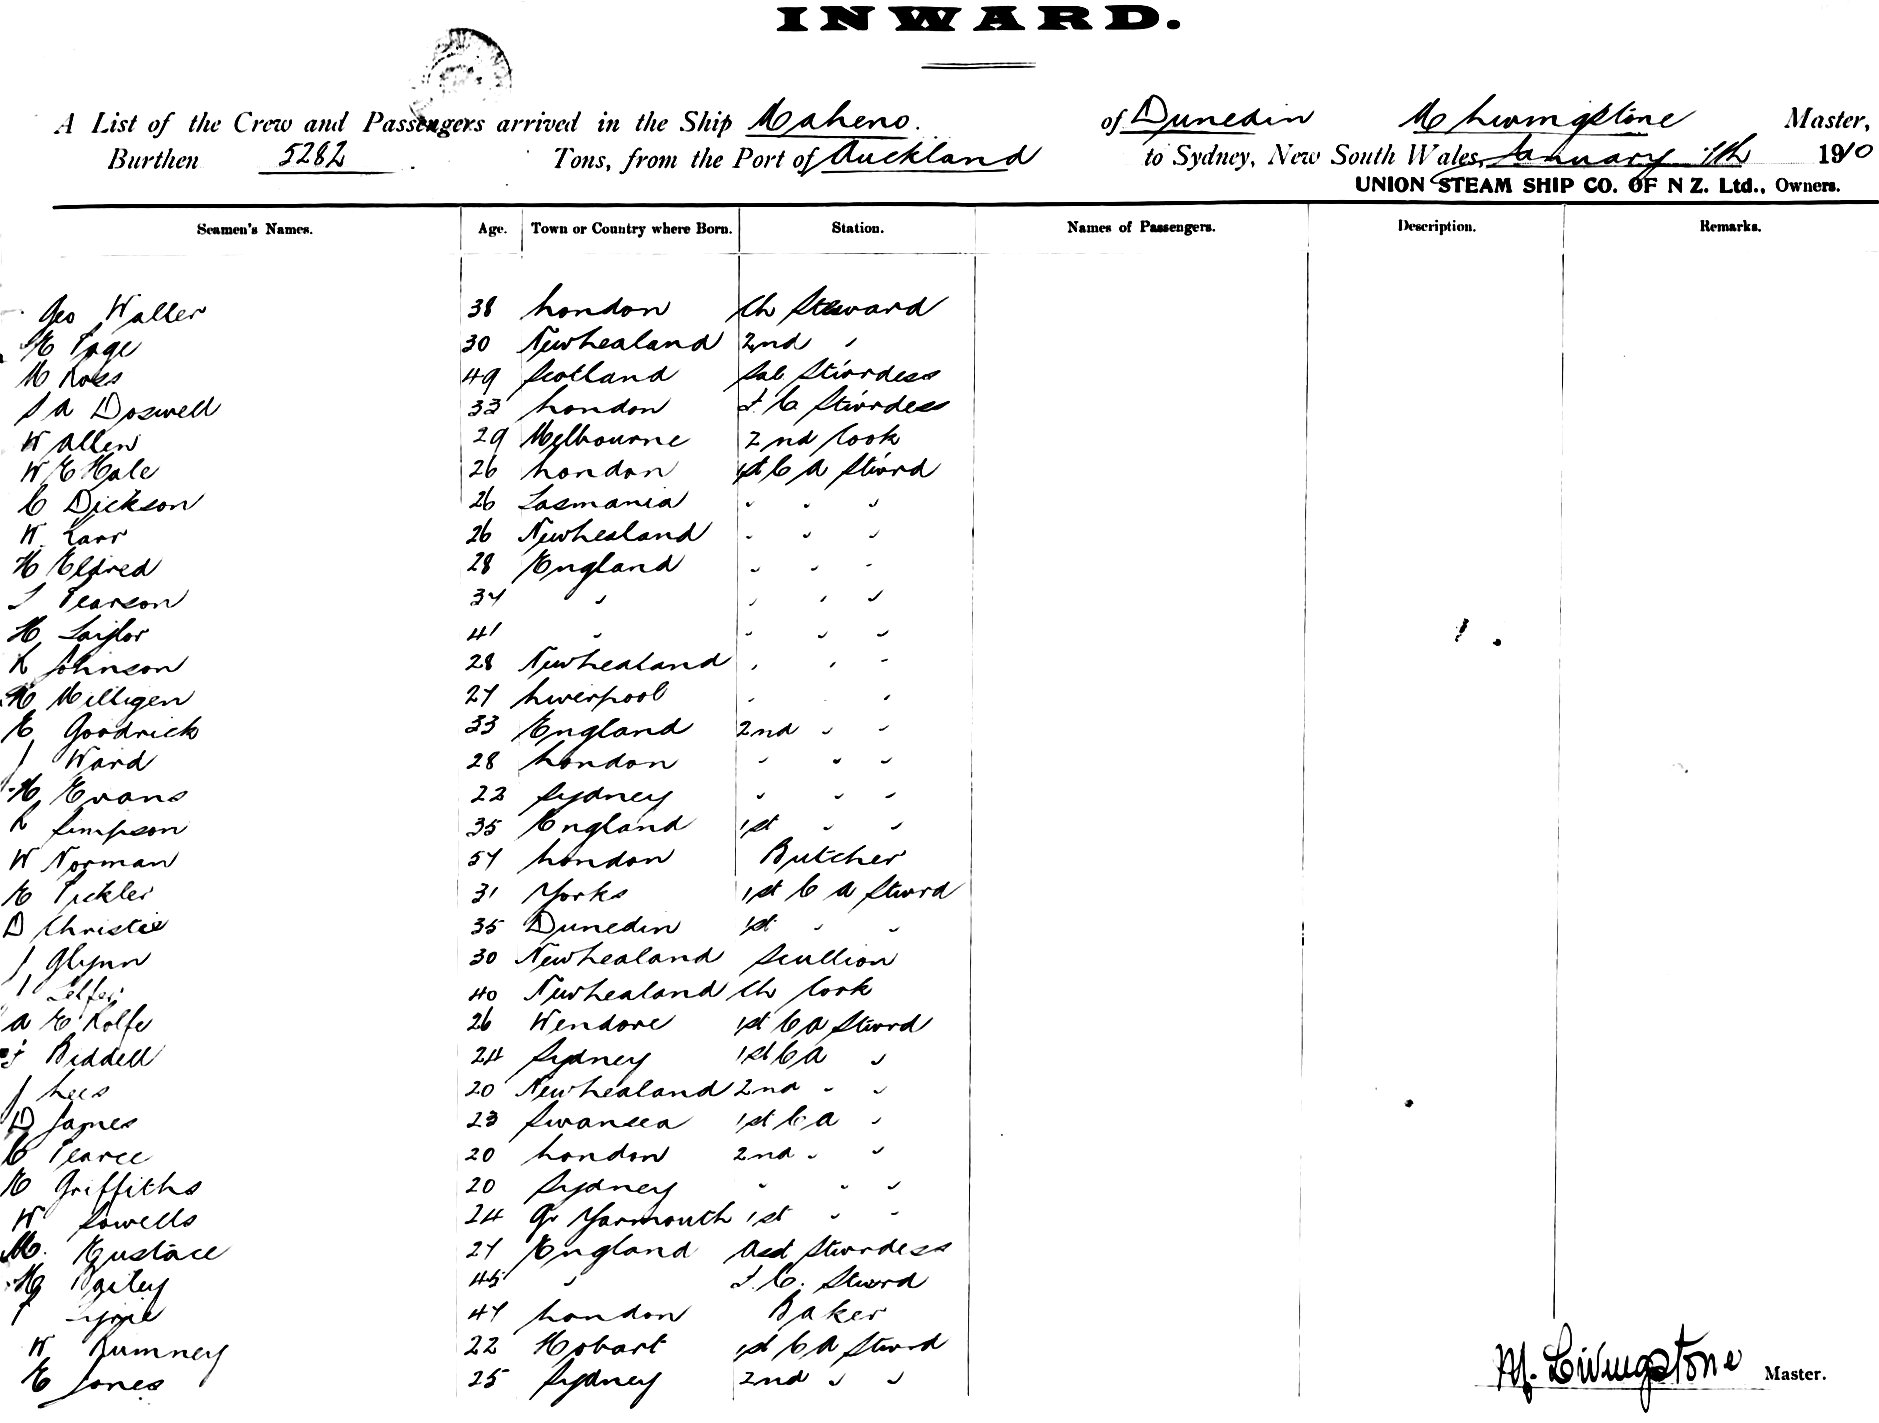 INWARD.
A List of the Crew and Passengers arrived in the Ship Maheno of Dunedin M Livingstone Master,
Burthen 5282 Tons, from the Port of Auckland to Sydney, New South Wales, January 7th 1910
UNION STEAM SHIP CO. OF N Z. Ltd., Owners.
Seamen's Names. Age. Town or Country where Born. Station. Names of Passengers. Description. Remarks.
Geo Waller 38 London Ch Steward
E Page 30 New Zealand 2nd "
M Ross 49 Scotland Sal Stwrdess
S A Doswell 33 London F. C Stwrdess
W Allen 29 Melbourne 2nd Cook
W E Hale 26 London 1st C A Stwrd
C Dickson 26 Tasmania " " "
W. Karr 26 New Zealand " " "
H Eldred 28 England " " "
Pearson 37 " " " "
H Taylor 41 " " " "
R Johnson 28 New Zealand " " "
H Milligen 27 Liverpool " "
E Goodrick 33 England 2nd " "
J Ward 28 London " " "
H Evans 22 Sydney " " "
R Simpson 35 England 1st " "
W Norman 57 London Butcher
E Pickler 31 Yorks 1st C A Stwrd
D Christie 35 Dunedin 1st " "
J Glynn 30 New Zealand Scullion
Telfer 40 New Zealand Ch Cook
A E Rolfe 26 Wendore 1st C A Stwrd
F Biddell 24 Sydney 1st C A "
J Lees 20 New Zealand 2nd " "
D James 23 Swansea 1st C A "
C Pearce 20 London 2nd " "
E Griffiths 20 Sydney " " "
W Sowells 24 Gr Yarmouth 1st " "
M. Eustace 27 England Asst Stwrdess
H Bailey 45 " F. C. Stwrd
47 London Baker
W Rumney 22 Hobart 1st C A Stwrd
E Jones 25 Sydney 2nd " "
M. Livingstone Master.